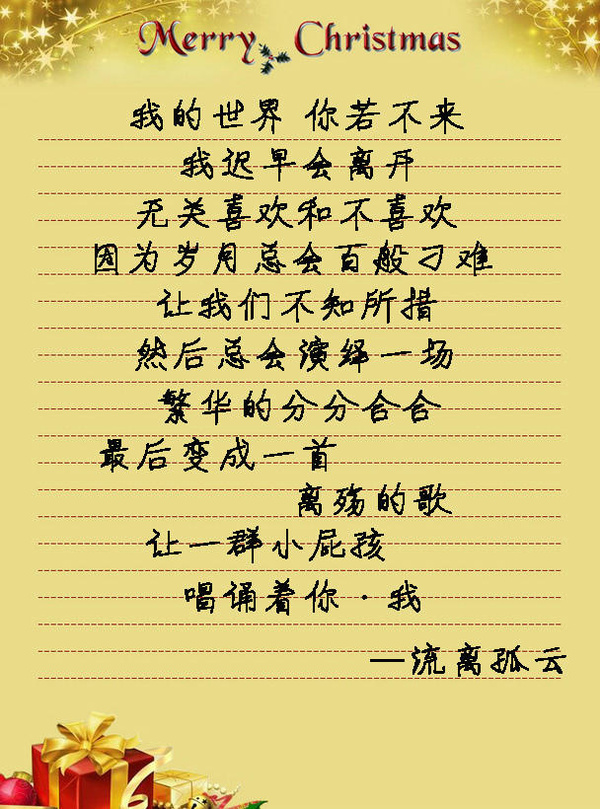 Merry Christmas
我的世界 你若不来
我迟早会离开
无关喜欢和不喜欢
因为岁月总会百般刁难
让我们不知所措
然后总会演绎一场
繁华的分分合合
最后变成一首
离殇的歌
让一群小屁孩
唱诵着你·我
—流离孤云